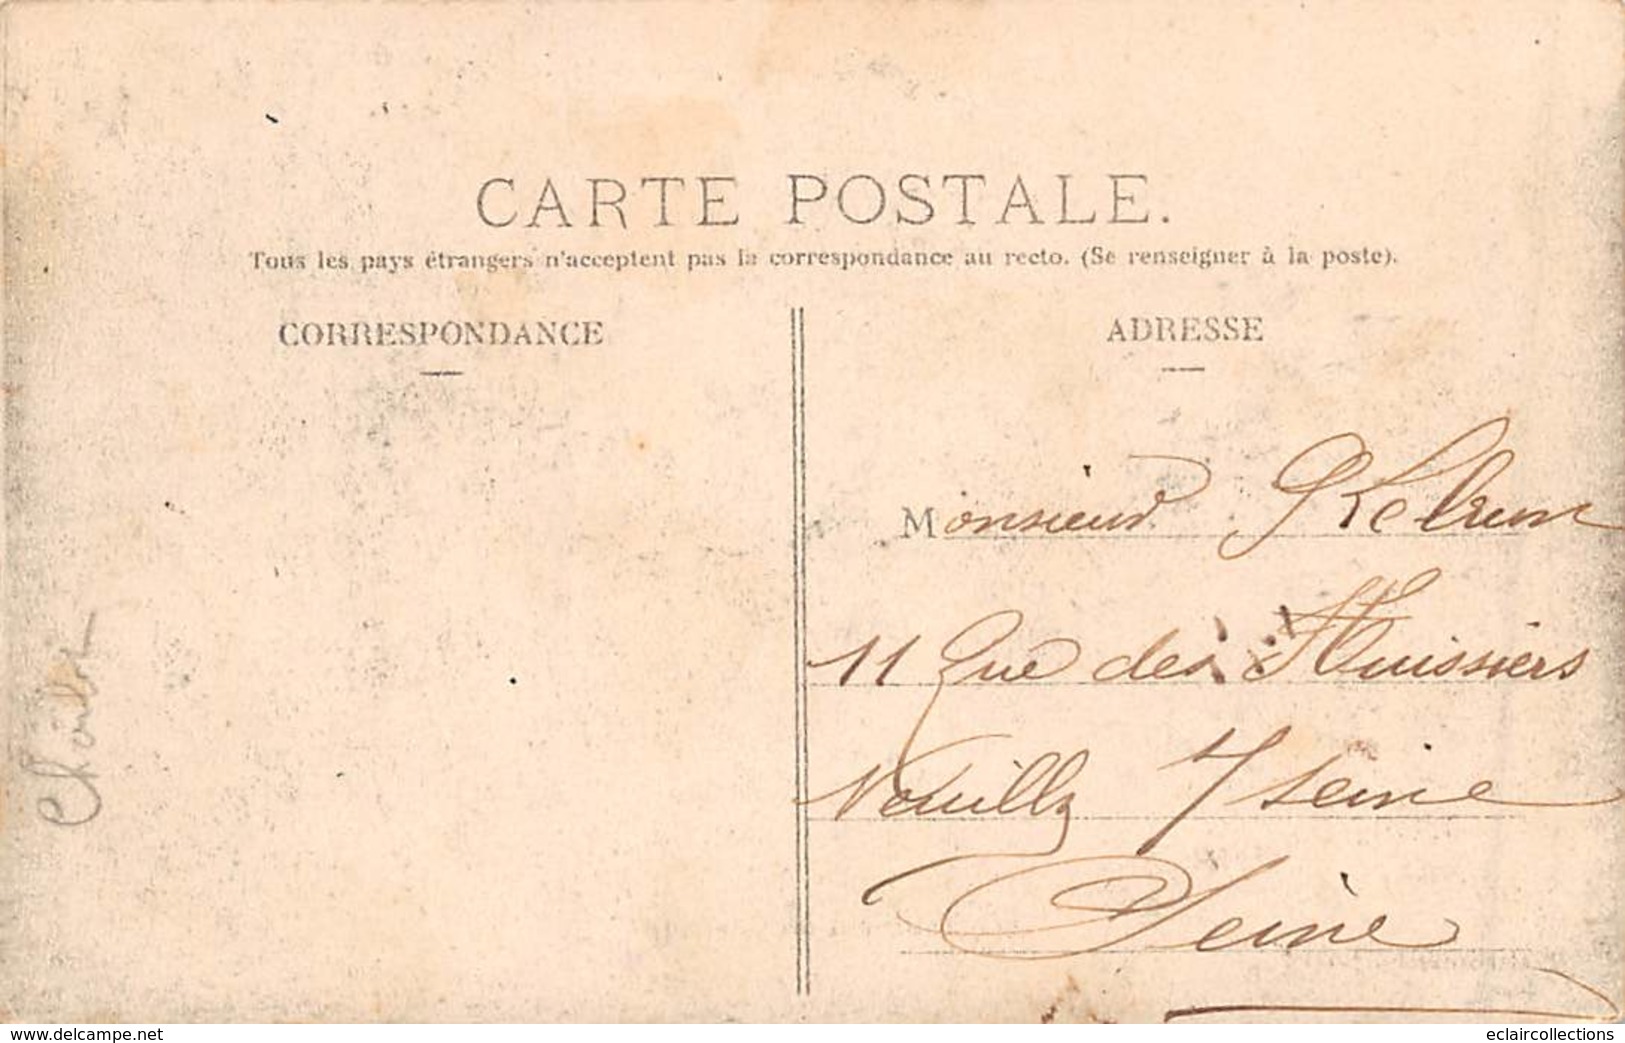 CARTE POSTALE.
Tous les pays étrangers n'acceptent pas la correspondance au recto. (Se renseigner à la poste).
CORRESPONDANCE
ADRESSE
Monsieur
11 Rue des Huissiers
Neuilly s/ seine
Seine
delcampe.net
eclaircollections